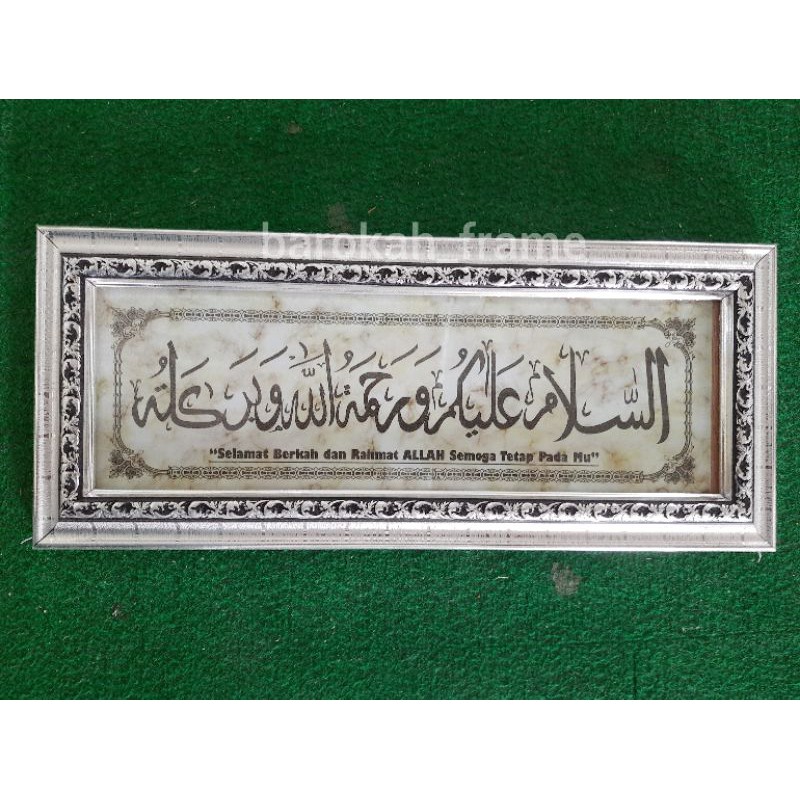 barokah_frame
السلام عليكم ورحمة الله وبركاته
"Selamat Berkah dan Rahmat ALLAH Semoga Tetap Pada Mu"